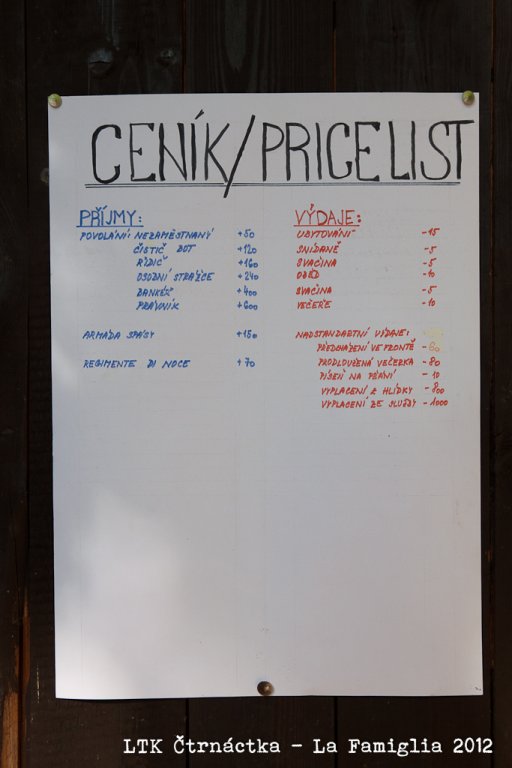 CENÍK/PRICELIST
PŘÍJMY:
POVOLÁNÍ: NEZAMĚSTNANÝ +50
ČISTIČ BOT +120
ŘIDIČ +160
OSOBNÍ STRÁŽCE +240
BANKÉŘ +400
PRÁVNÍK +600
ARMÁDA SPÁSY +150
REGIMENTE DI NOCE +70
VÝDAJE:
UBYTOVÁNÍ -15
SNÍDANĚ -5
SVAČINA -5
OBĚD -10
SVAČINA -5
VEČEŘE -10
NADSTANDARTNÍ VÝDAJE:
PŘEDCHÁZENÍ VE FRONTĚ -60
PRODLOUŽENÁ VEČERKA -80
PÍSEŇ NA PŘÁNÍ -10
VYPLACENÍ Z HLÍDKY -800
VYPLACENÍ ZE SLUŽBY -1000
LTK Čtrnáctka - La Famiglia 2012